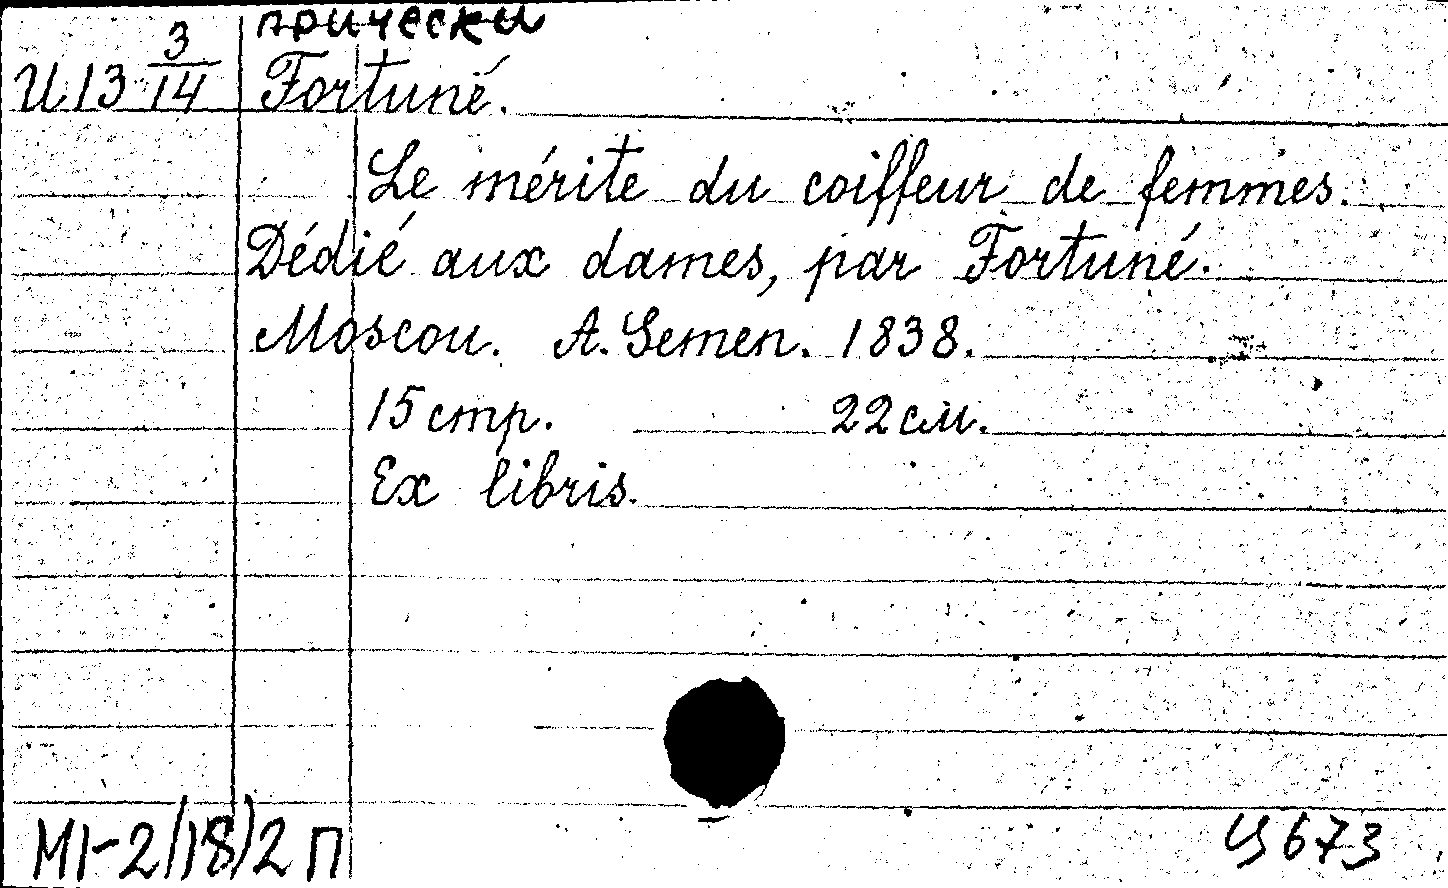 прически
И13 3/14 Fortuné.
Le mérite du coiffeur de femmes.
Dédié aux dames, par Fortuné.
Moscou. A. Semen. 1838.
15 стр. 22 см.
Ex libris.
МІ-2/(18)2 П Ц 673